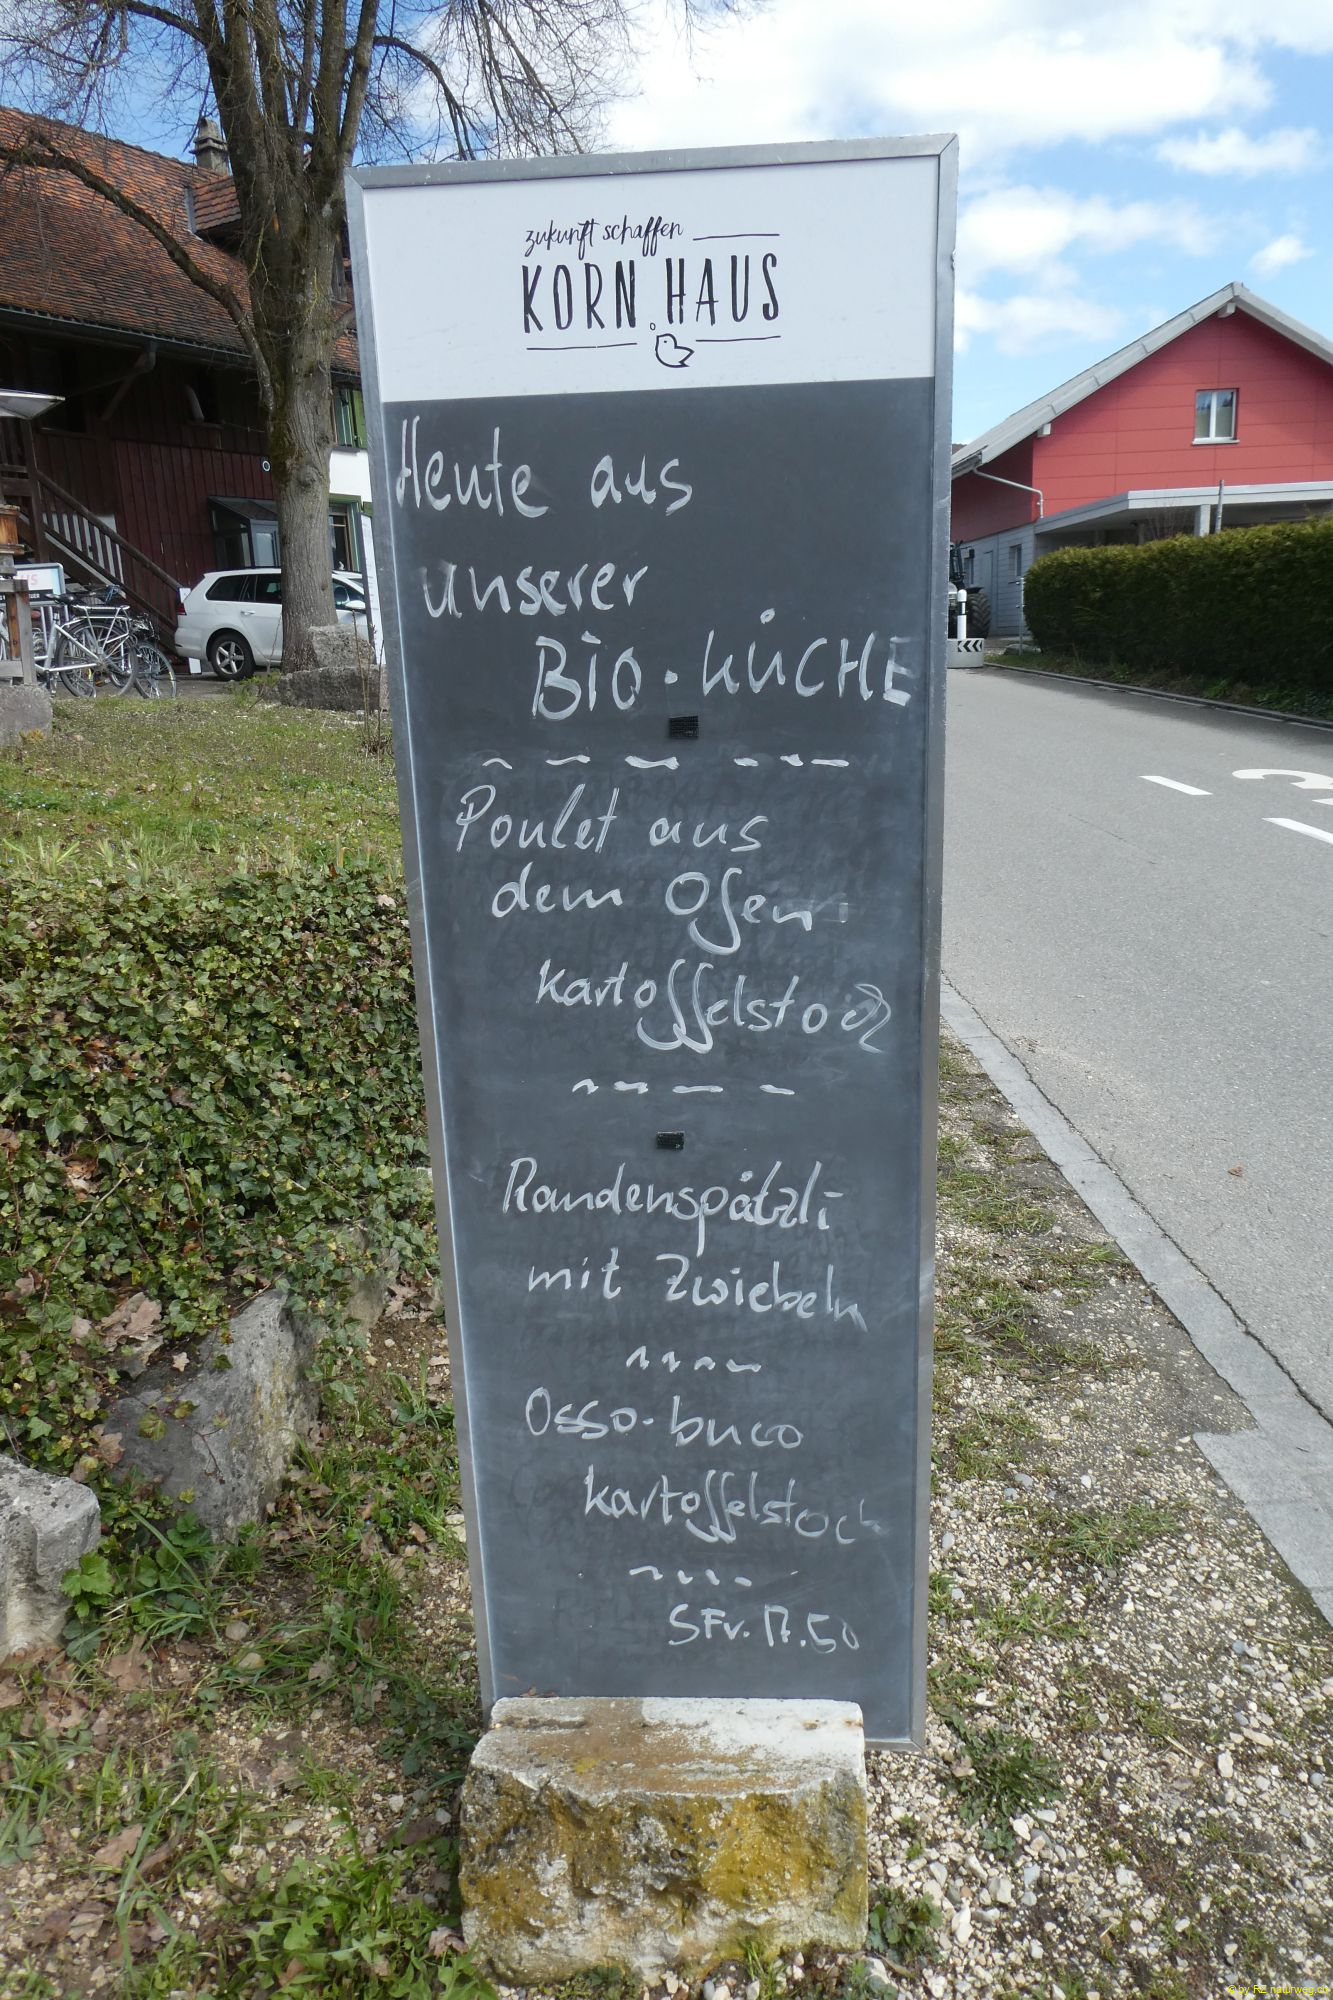 zukunft schaffen
KORN HAUS
Heute aus
unserer
BIO-KÜCHE
Poulet aus
dem Ofen
Kartoffelstock
Randenspätzli
mit Zwiebeln
Osso-buco
Kartoffelstock
SFr. 17.50
© by RZ naturweg.ch